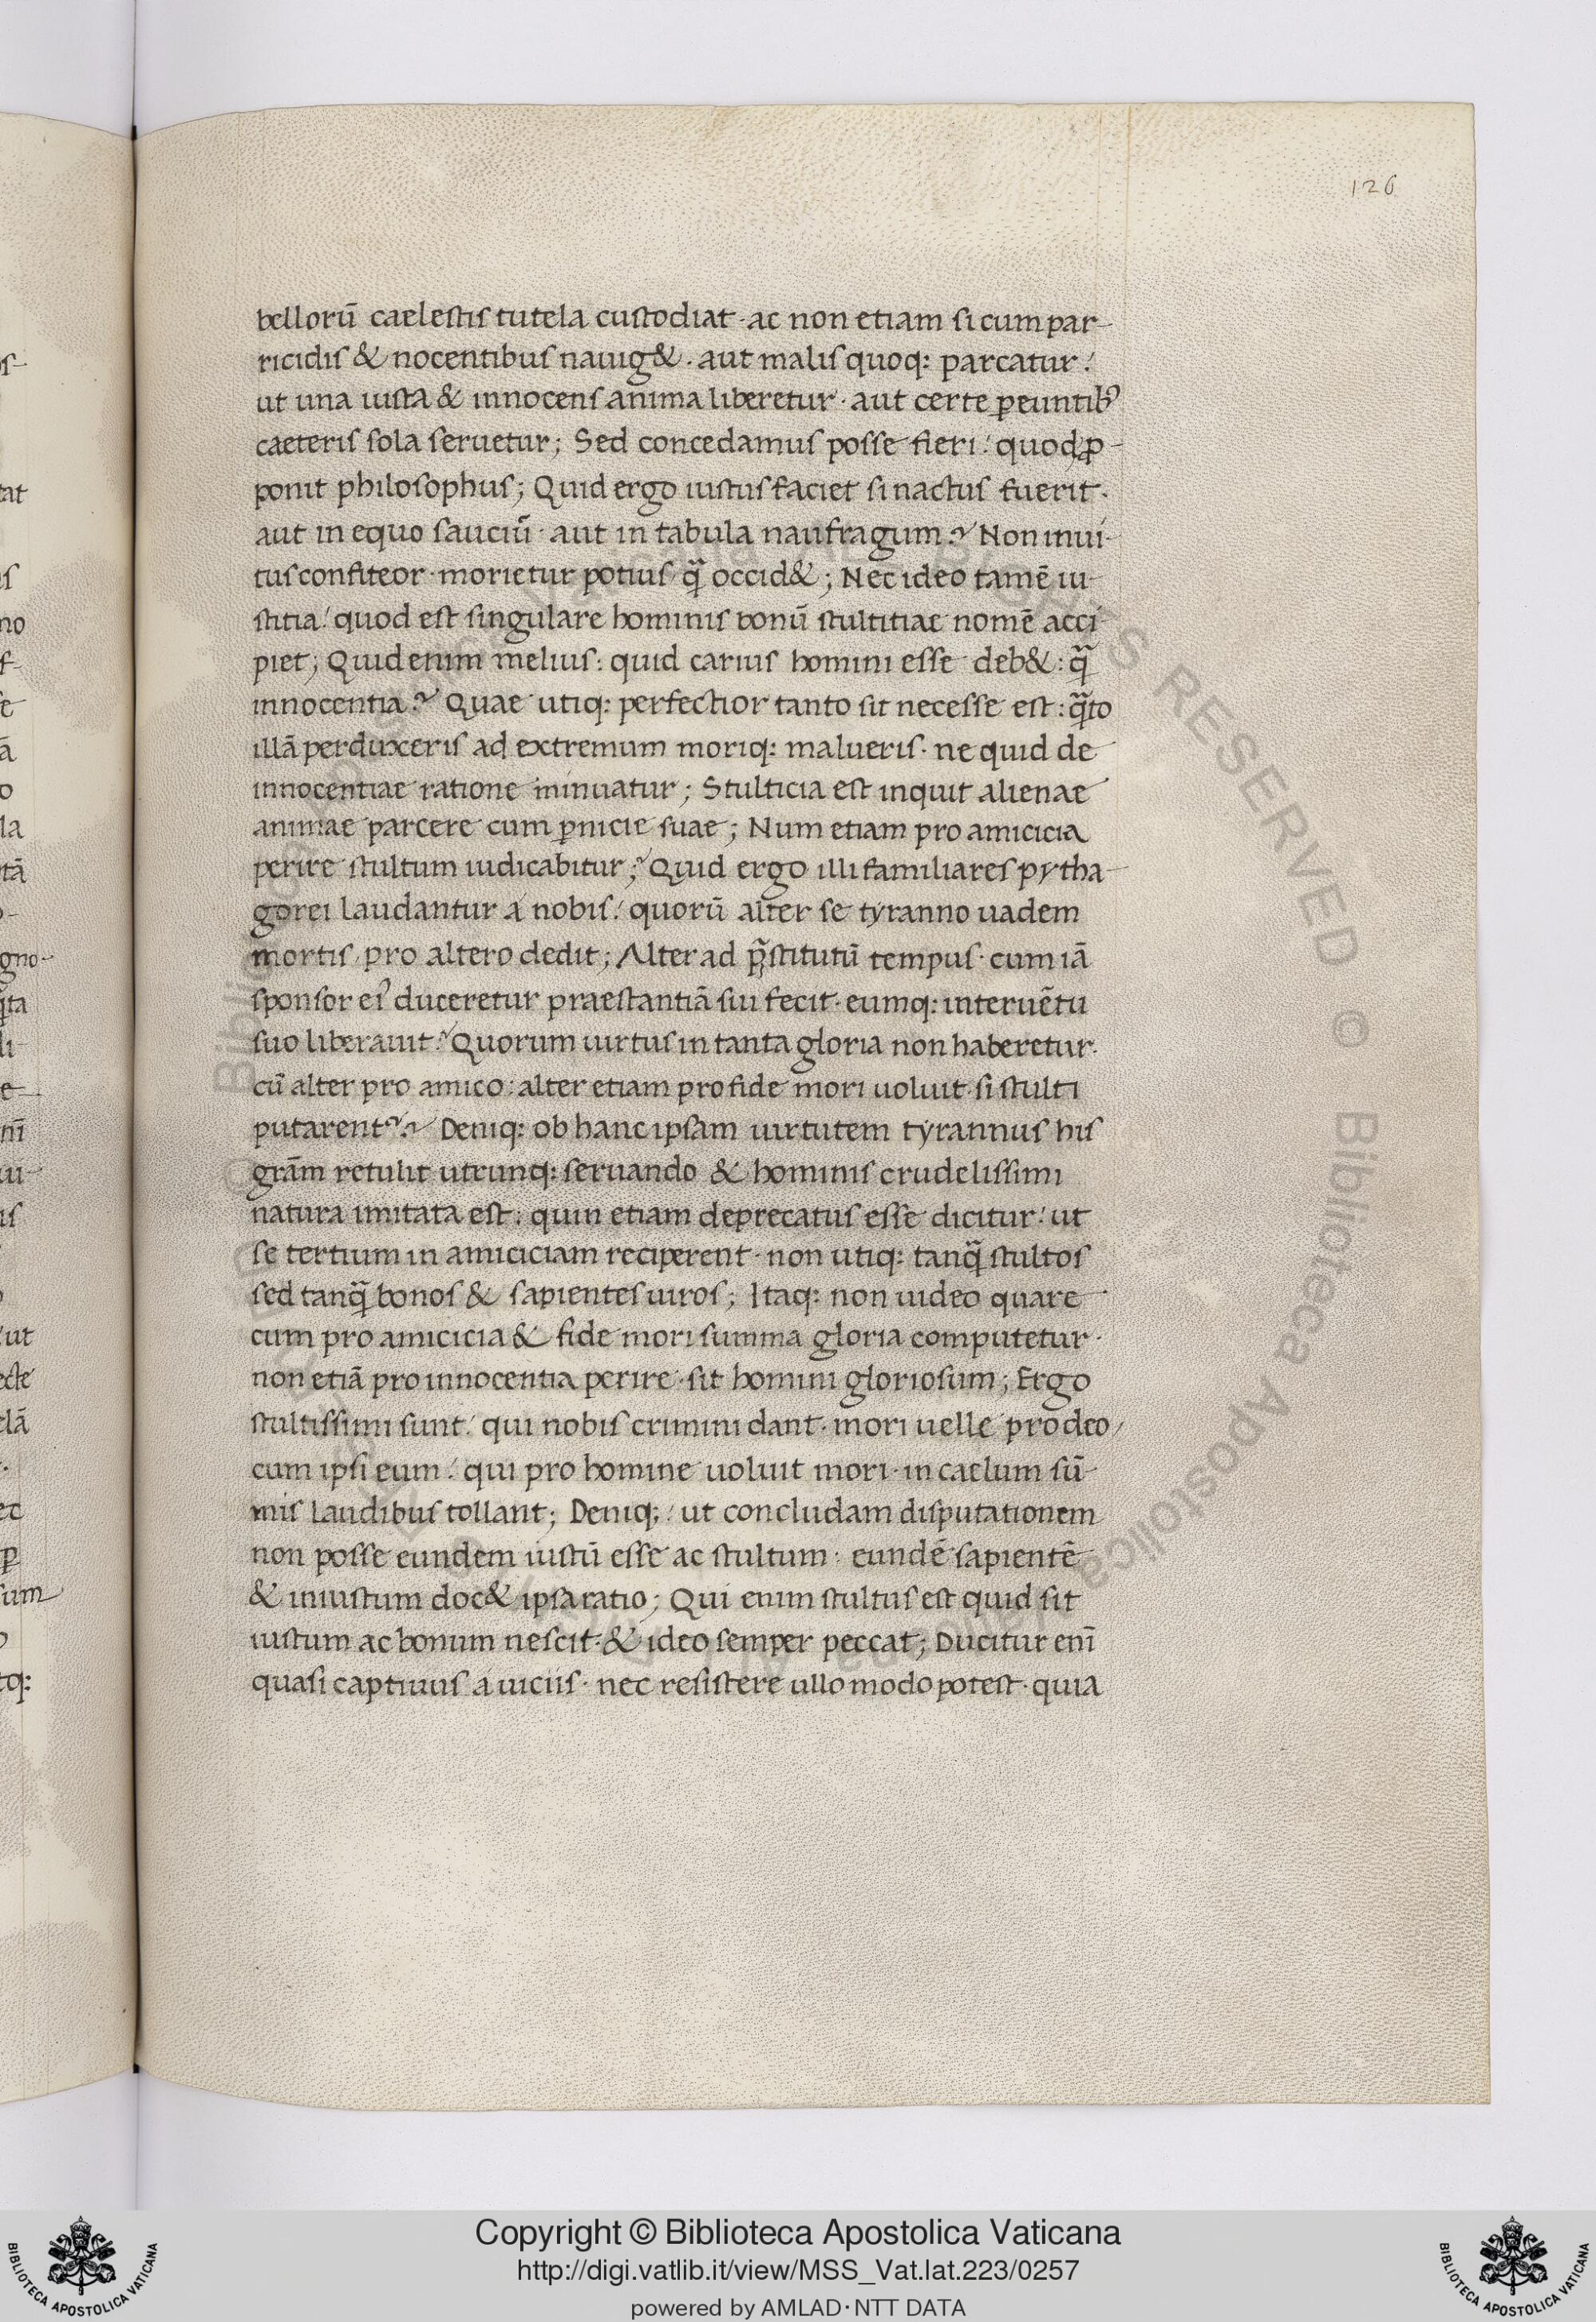 126
bellorū caelestis tutela custodiat · ac non etiam si cum par-
ricidis & nocentibus nauig& · aut malis quoq: parcatur!
ut una iusta & innocens anima liberetur · aut certe ꝑeuntib⁹
caeteris sola seruetur; Sed concedamus posse fieri! quod ꝓ-
ponit philosophus; Quid ergo iustus faciet si nactus fuerit ·
aut in equo sauciū · aut in tabula naufragum? Non inui-
tus confiteor · morietur potius q̄ occid&; Nec ideo tamē iu-
stitia! quod est singulare hominis bonū stultitiae nomē acci
piet; Quid enim melius: quid carius homini esse deb&: q̄
innocentia? Quae utiq: perfectior tanto sit necesse est: q̄to
illā perduxceris ad extremum moriq: malueris · ne quid de
innocentiae ratione minuatur; Stulticia est inquit alienae
animae parcere cum ꝑnicie suae; Num etiam pro amicicia
perire stultum iudicabitur;? Quid ergo illi familiares pytha-
gorei laudantur á nobis! quorū alter se tyranno uadem
mortis pro altero dedit; Alter ad p̄stitutū tempus · cum iā
sponsor ei⁹ duceretur praestantiā sui fecit · eumq: interuētu
suo liberauit? Quorum uirtus in tanta gloria non haberetur ·
cū alter pro amico: alter etiam pro fide mori uoluit · si stulti
putarent²? Deniq: ob hanc ipsam uirtutem tyrannus his
grām retulit utrunq: seruando & hominis crudelissimi
natura imitata est: quin etiam deprecatus esse dicitur! ut
se tertium in amiciciam reciperent · non utiq: tanq̄ stultos
sed tanq̄ bonos & sapientes uiros; Itaq: non uideo quare
cum pro amicicia & fide mori summa gloria computetur ·
non etiā pro innocentia perire · sit homini gloriosum; Ergo
stultissimi sunt! qui nobis crimini dant · mori uelle pro deo/
cum ipsi eum! qui pro homine uoluit mori · in caelum sū-
mis laudibus tollant; Deniq;! ut concludam disputationem
non posse eundem iustū esse ac stultum: eundē sapientē
& iniustum doc& ipsa ratio; Qui enim stultus est quid sit
iustum ac bonum nescit · & ideo semper peccat; Ducitur enī
quasi captiuus á uiciis · nec resistere ullo modo potest · quia
Copyright © Biblioteca Apostolica Vaticana
http://digi.vatlib.it/view/MSS_Vat.lat.223/0257
powered by AMLAD·NTT DATA
BIBLIOTECA APOSTOLICA VATICANA
BIBLIOTECA APOSTOLICA VATICANA